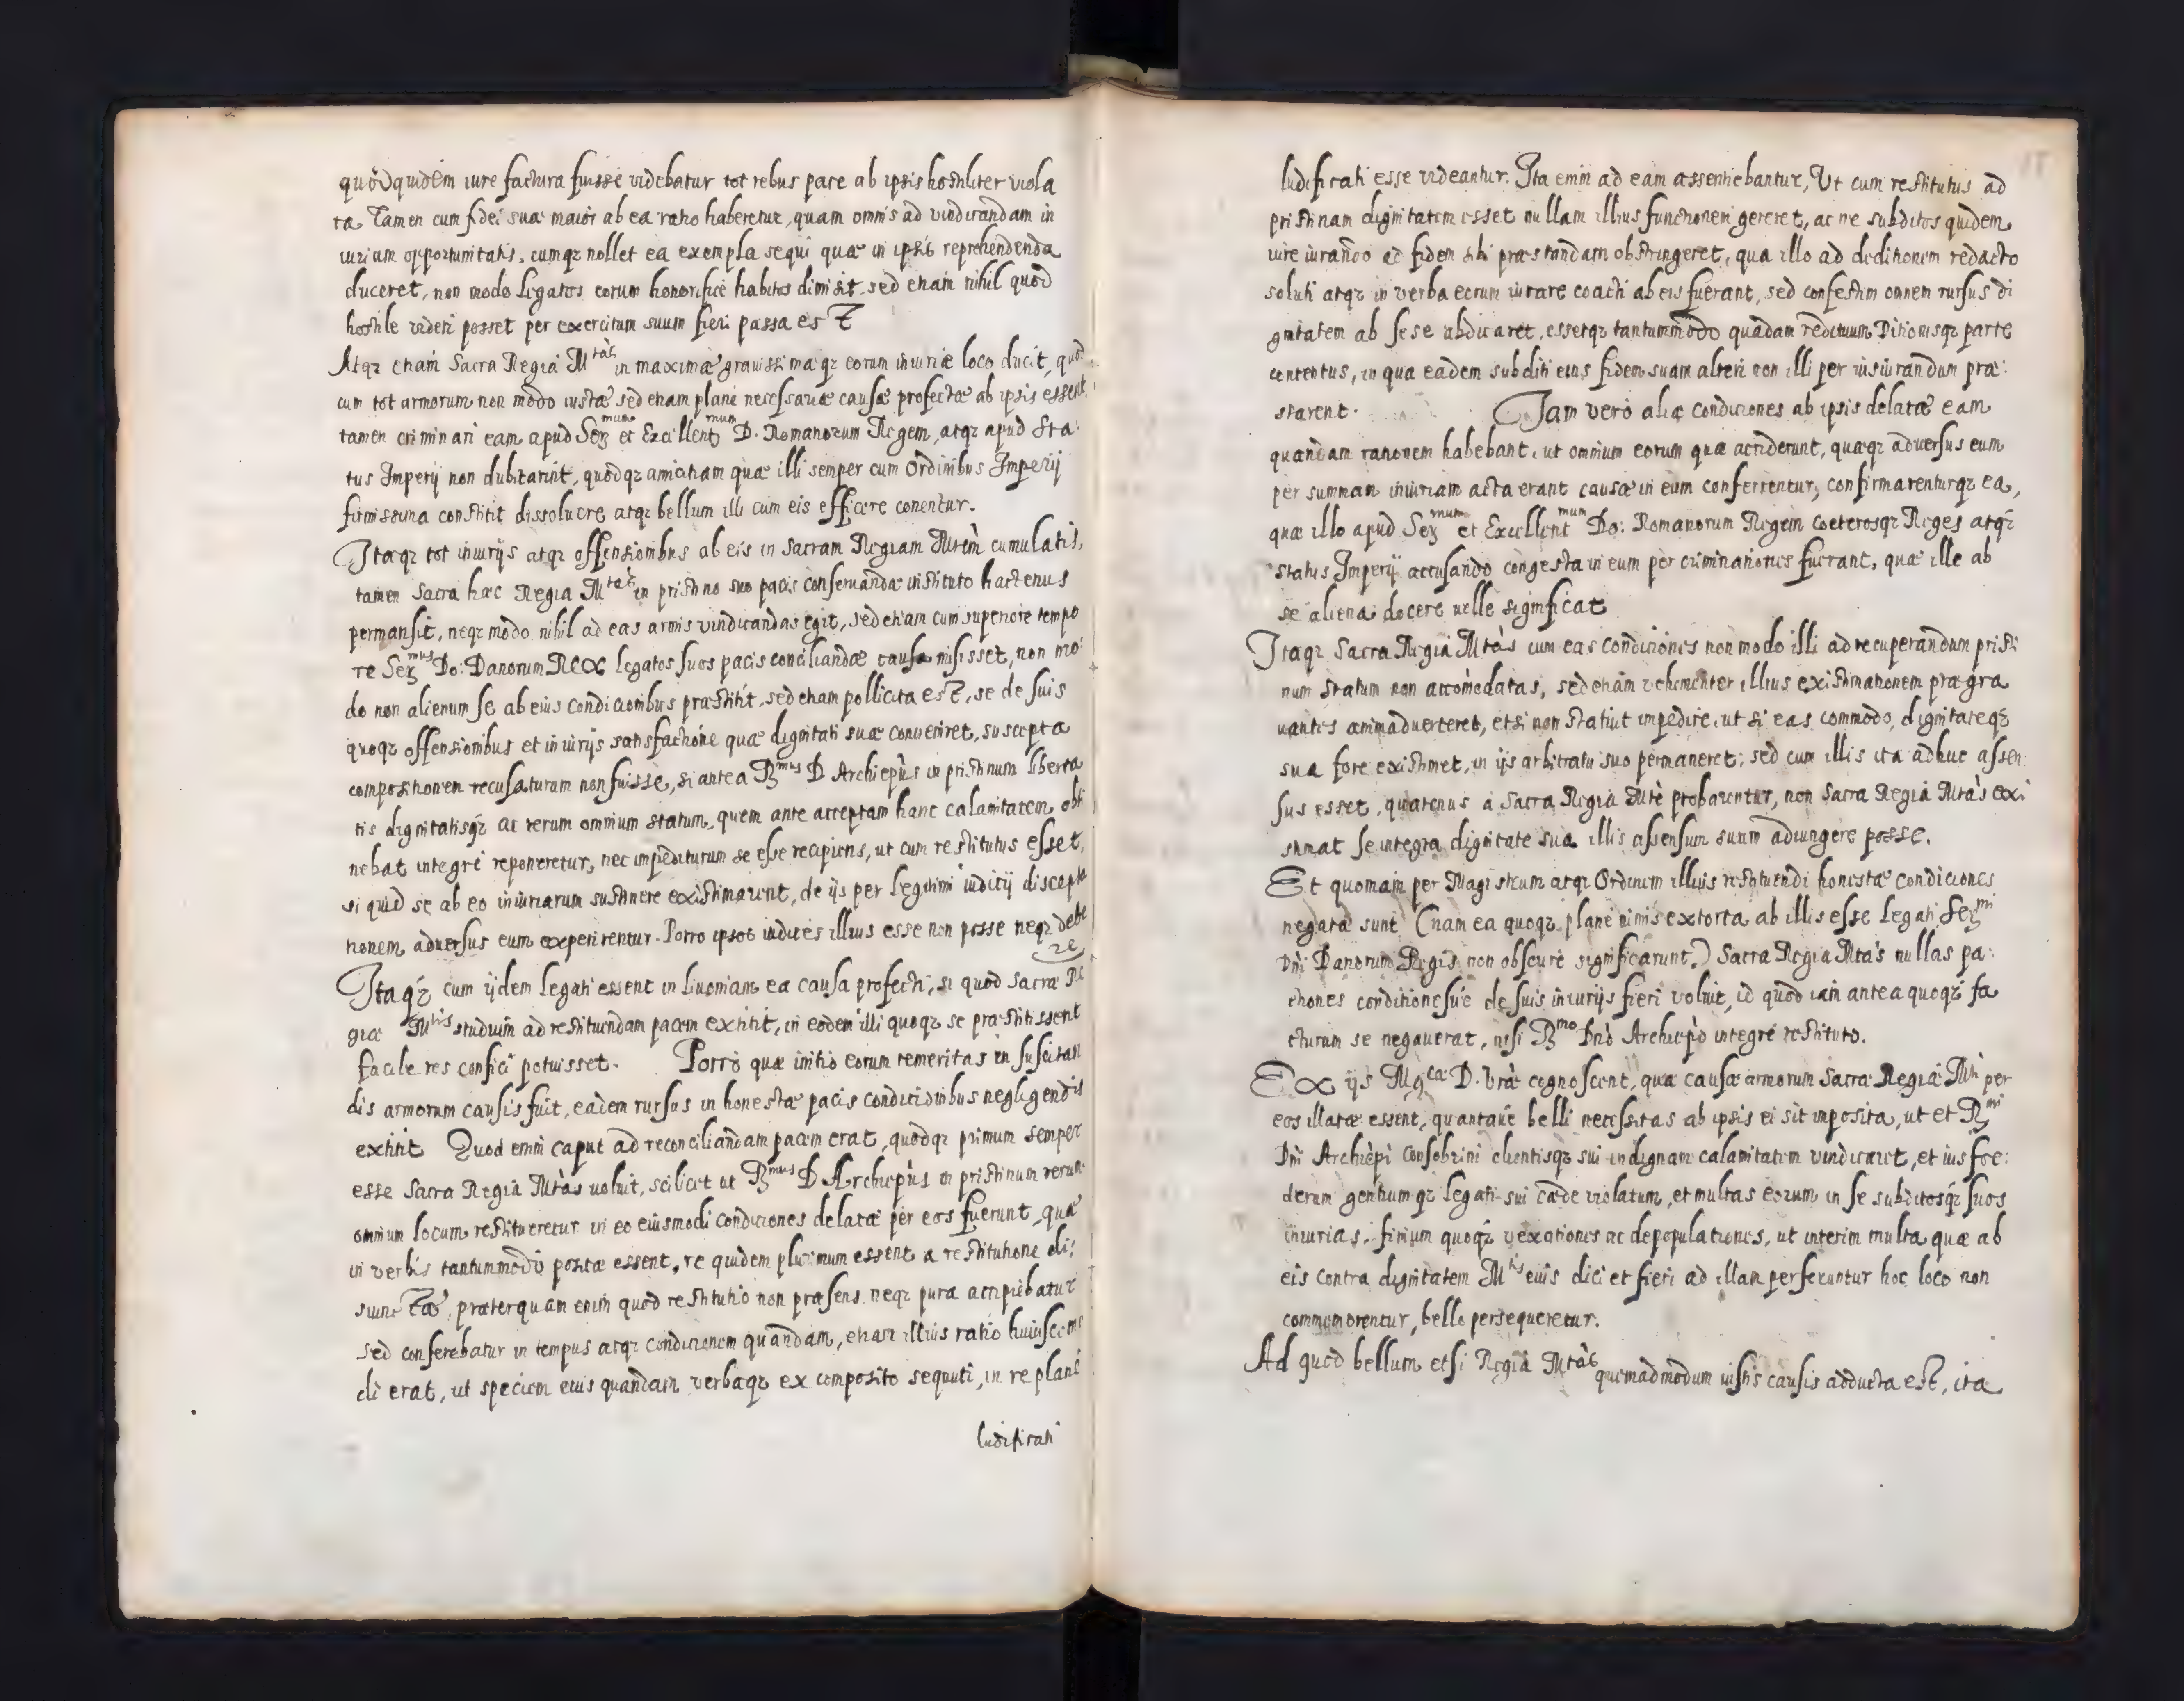 quod quidem iure factura fuisse videbatur tot rebus pace ab ipsis hostiliter viola
ta Tamen cum fidei suæ maior ab ea ratio haberetur, quam omnis ad vindicandam in
iuriam opportunitatis, cumqz nollet ea exempla sequi quæ in ipsis reprehendenda
duceret, non modo Legatos eorum honorificè habitos dimisit sed etiam nihil quod
hostile videri posset per exercitum suum fieri passa est
Atqz etiam Sacra Regia Mtàs in maximæ gravissimæqz eorum iniuriæ loco ducit, quod
cum tot armorum non modo iustæ sed etiam planè necessariæ causæ profectæ ab ipsis essent,
tamen criminari eam apud Sermum et Excellentmum D. Romanorum Regem, atqz apud Sta:
tus Imperij non dubitarint, quodqz amicitiam quæ illi semper cum Ordinibus Imperij
firmissima constitit dissoluere atqz bellum illi cum eis efficere conentur.
Itaqz tot iniurijs atqz offensionibus ab eis in Sacram Regiam Mtem cumulatis,
tamen Sacra hæc Regia Mtàs in pristino suo pacis conseruandæ instituto hactenus
permansit, neqz modo nihil ad eas armis vindicandas egit, sed etiam cum superiore tempo
re Sermus Do: Danorum Rex legatos suos pacis conciliandæ causa misisset, non mo:
do non alienum se ab eius condicionibus præstitit, sed etiam pollicita est, se de suis
quoqz offensionibus et iniurijs satisfactione quæ dignitati suæ conueniret, suscepta
compositionem recusaturam non fuisse, si antea Rmus D Archiepùs in pristinum liberta
tis dignitatisqz ac rerum omnium statum, quem ante acceptam hanc calamitatem obti
nebat integrè reponeretur, nec impediturum se esse recipiens, ut cum restitutus esset,
si quid se ab eo iniuriarum sustinere existimarent, de ijs per legitimi iudicij discepta
tionem aduersus eum experirentur. Porro ipsos iudices illius esse non posse neqz debe
re
Itaqz cum ijdem Legati essent in Liuoniam ea causa profecti, si quod Sacræ Re
giæ Mtis studium ad restituendam pacem extitit, in eodem illi quoqz se præstitissent
facile res confici potuisset. Porrò quæ initio eorum temeritas in suscitan
dis armorum causis fuit, eadem rursus in honestæ pacis condicionibus negligendis
extitit Quod enim caput ad reconciliandam pacem erat, quodqz primum semper
esse Sacra Regia Mtàs uoluit, scilicet ut Rmus D Archiepùs in pristinum rerum
omnium locum restitueretur in eo eiusmodi condiciones delatæ per eos fuerunt, quæ
in verbis tantummodo positæ essent, re quidem plurimum essent a restitutione di:
siunctæ, præterquam enim quod restitutio non præsens neqz pura accipiebatur
sed conferebatur in tempus atqz condicionem quandam, etiam illius ratio huiuscemo
di erat, ut speciem eius quandam verbaqz ex composito sequuti, in re planè
ludificati
ludificati esse videantur. Ita enim ad eam assentiebantur, Ut cum restitutus ad
pristinam dignitatem esset nullam illius functionem gereret, ac ne subditos quidem
iure iurando ad fidem sibi præstandam obstringeret, qua illo ad deditionem redacto
soluti atqz in verba eorum iurare coacti ab eis fuerant, sed confestim omnem rursus di
gnitatem ab sese abdicaret, essetqz tantummodo quadam redituum Ditionisqz parte
contentus, in qua eadem subditi eius fidem suam alteri non illi per iusiurandum præ:
starent. Iam verò aliæ condiciones ab ipsis delatæ eam
quandam rationem habebant, ut omnium eorum quæ acciderunt, quæqz aduersus eum
per summam iniuriam acta erant causæ in eum conferrentur, confirmarenturqz ea,
quæ illo apud Sermum et Excellentmum Do: Romanorum Regem coeterosqz Reges atqz
status Imperij accusando congesta in eum per criminationes fuerant, quæ ille ab
se aliena docere uelle significat
Itaqz Sacra Regia Mtàs cum eas condiciones non modo illi ad recuperandum pristi
num statum non accomodatas, sed etiam vehementer illius existimationem prægra
uantes animaduerteret, etsi non statuit impedire, ut si eas commodo, dignitateqz
sua fore existimet, in ijs arbitratu suo permaneret; sed cum illis ita adhuc assen
sus esset, quatenus a Sacra Regia Mte probarentur, non Sacra Regia Mtàs exi
stimat se integra dignitate sua illis assensum suum adiungere posse.
Et quoniam per Magistrum atqz Ordinem illius restituendi honestæ condiciones
negatæ sunt (nam ea quoqz planè nimis extorta ab illis esse Legati Sermi
Dni Danorum Regis non obscurè significarunt.) Sacra Regia Mtàs nullas pa:
ctiones conditionesue de suis iniurijs fieri voluit, id quod iam antea quoqz fa
cturum se negauerat, nisi Rmo Dno Archiepò integrè restituto.
Ex ijs Mgcæ D. Vræ cognoscent, quæ causæ armorum Sacræ Regiæ Mti per
eos illatæ essent, quantaue belli necessitas ab ipsis ei sit imposita, ut et Rmi
Dni Archiepi Consobrini clientisqz sui indignam calamitatem vindicaret, et ius foe:
derum gentiumqz legati sui cæde violatum, et multas eorum in se subditosqz suos
iniurias, finium quoqz vexationes ac depopulationes, ut interim multa quæ ab
eis contra dignitatem Mtis euis dici et fieri ad illam perferuntur hoc loco non
commemorentur, bello persequeretur.
Ad quod bellum etsi Regia Mtàs quemadmodum iustis causis adducta est, ita